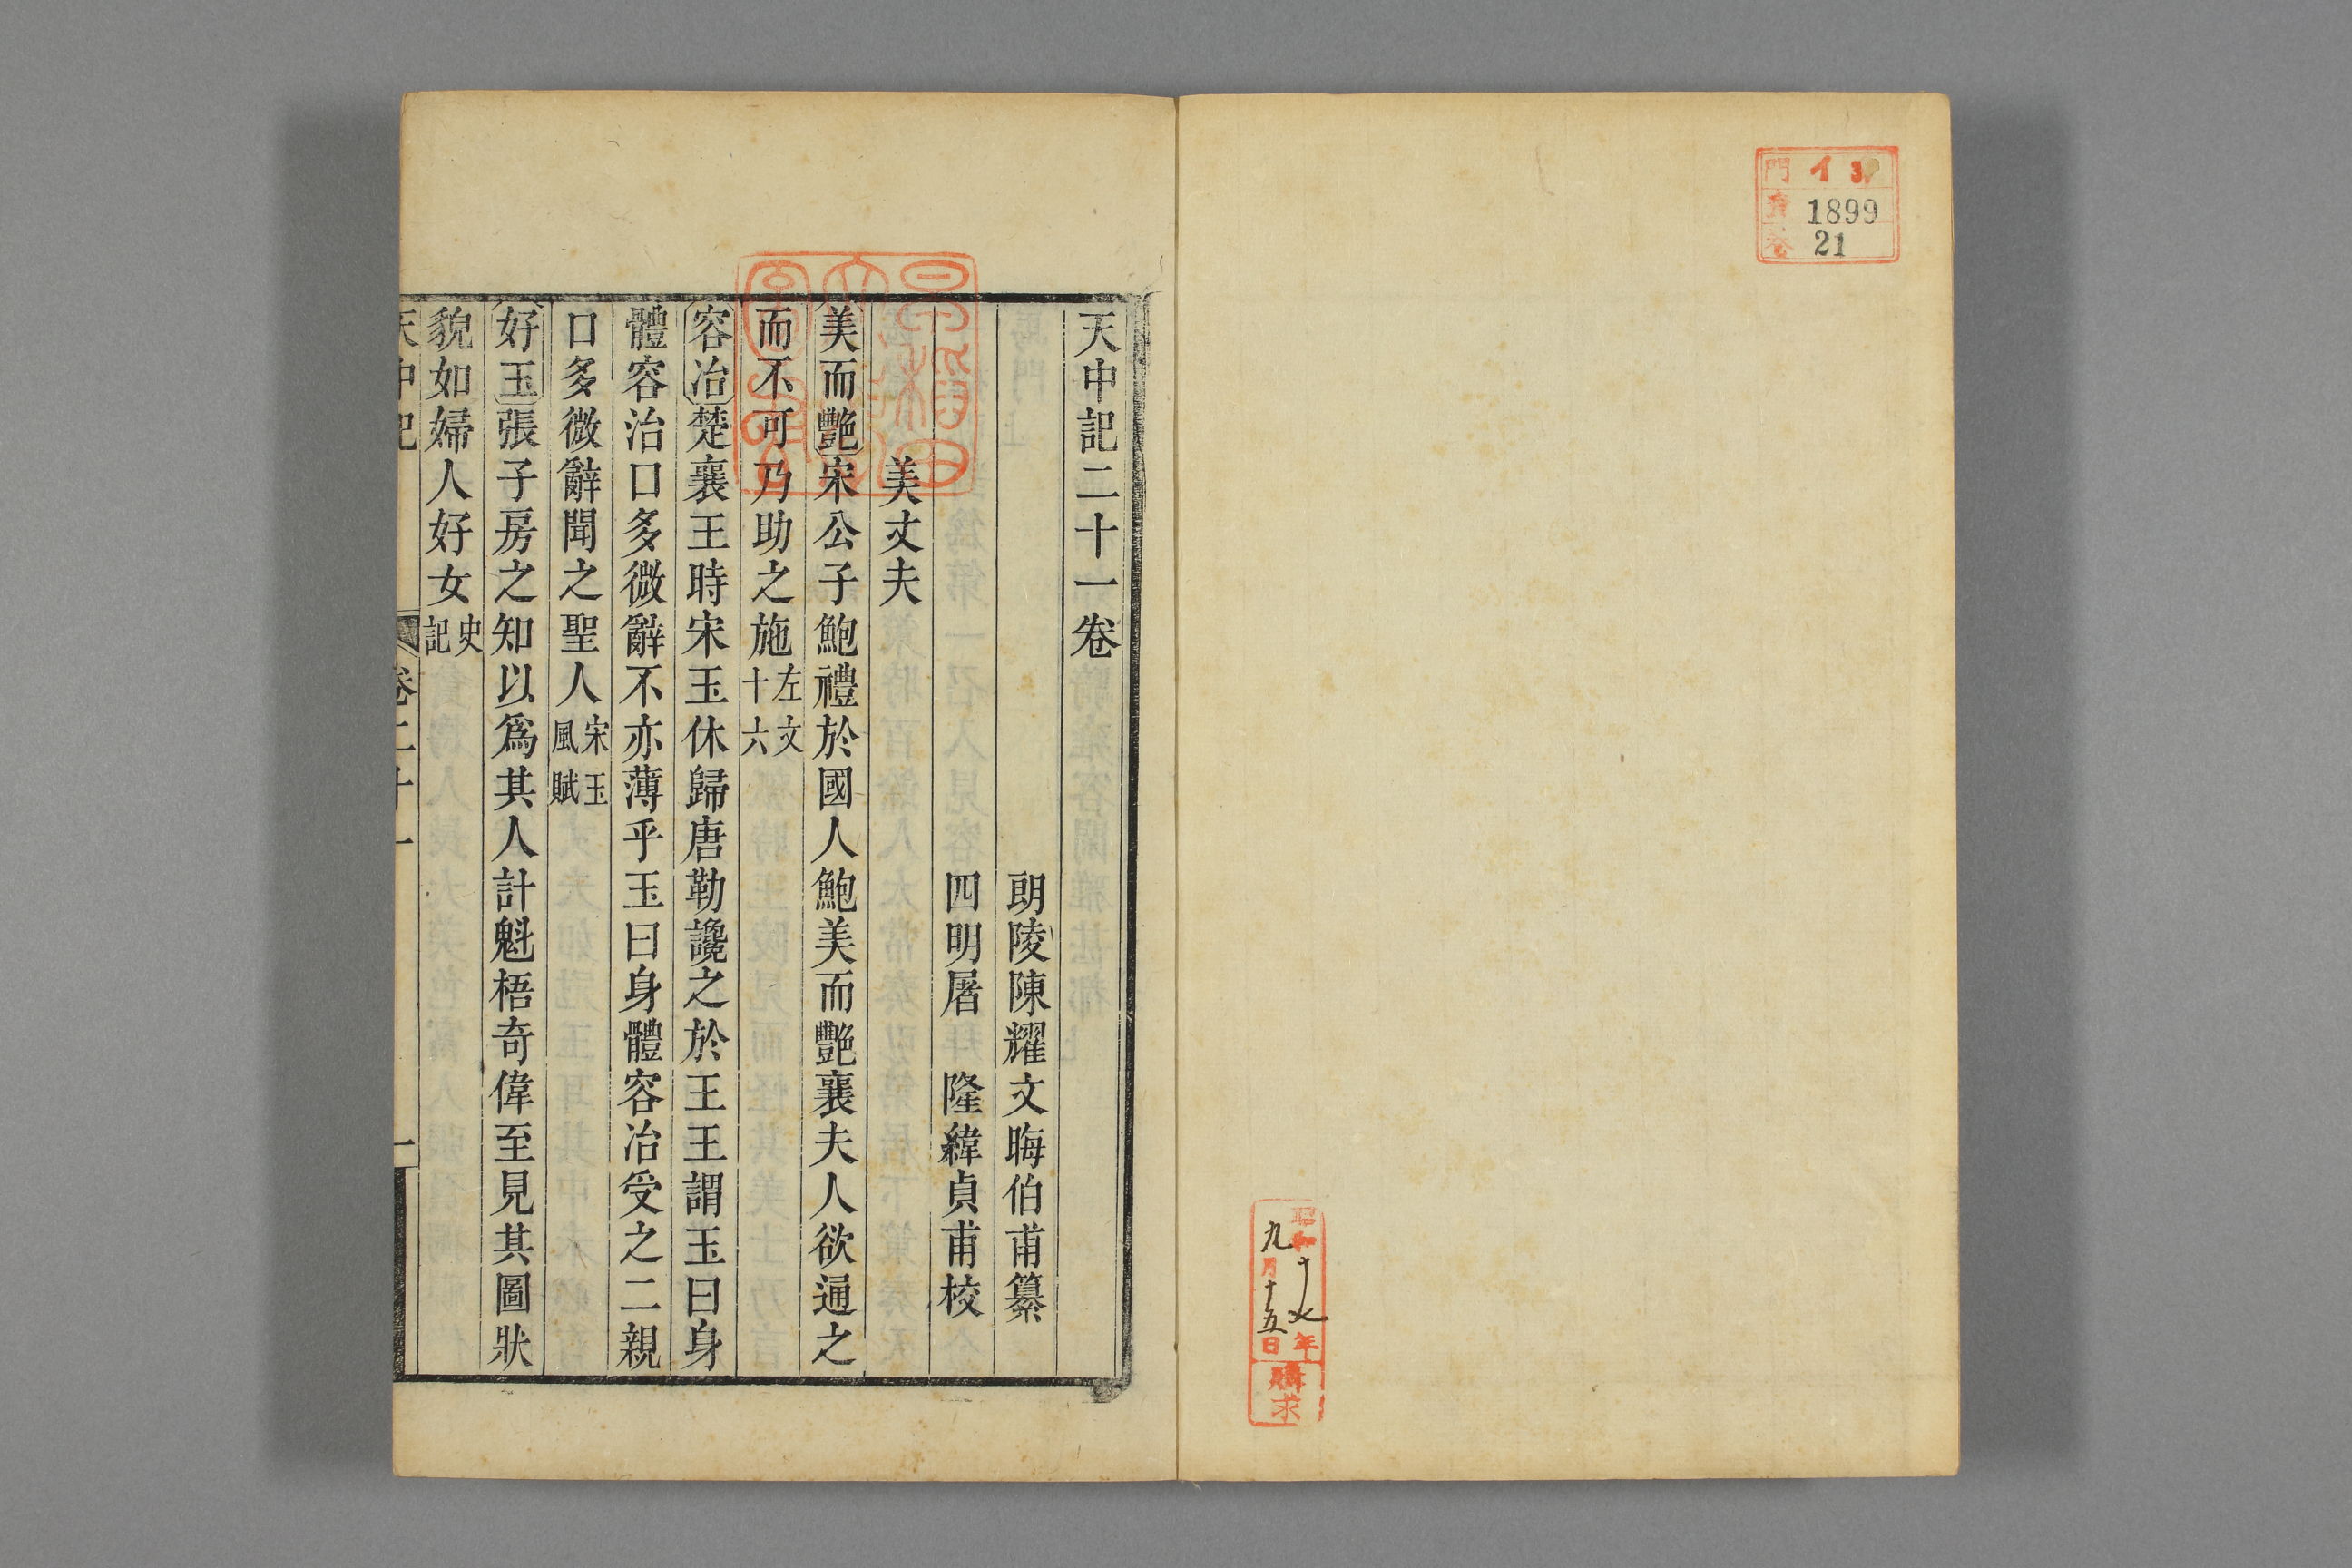 門 イ 3
1899
卷 21
昭和十七年
九月十五日
購求
天中記二十一卷
朗陵陳耀文晦伯甫纂
四明屠 隆緯貞甫校
美丈夫
美而艷宋公子鮑禮於國人鮑美而艷襄夫人欲通之
而不可乃助之施左文十六
容冶楚襄王時宋玉休歸唐勒讒之於王王謂玉曰身
體容冶口多微辭不亦薄乎玉曰身體容冶受之二親
口多微辭聞之聖人宋玉風賦
好玉張子房之知以為其人計魁梧奇偉至見其圖狀
貌如婦人好女史記
天中記 卷二十一 一